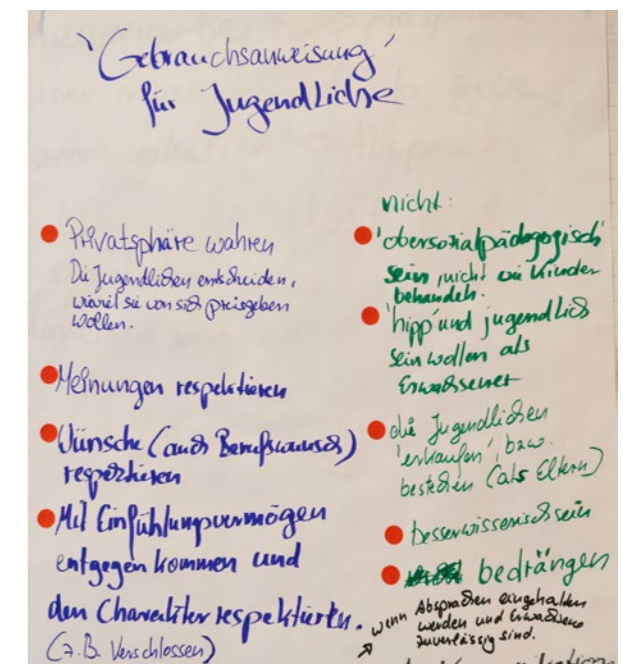 'Gebrauchsanweisung'
für Jugendliche
Privatsphäre wahren
Die Jugendlichen entscheiden,
wieviel sie von sich preisgeben
wollen.
Meinungen respektieren
Wünsche (auch Berufswunsch)
respektieren
Mit Einfühlungsvermögen
entgegen kommen und
den Charakter respektieren.
(z.B. Verschlossen)
nicht:
'obersozialpädagogisch'
sein, nicht wie Kinder
behandeln.
'hipp' und jugendlich
sein wollen als
Erwachsener
die Jugendlichen
'erkaufen', bzw.
bestechen (als Eltern)
besserwisserisch sein
bedrängen
wenn Absprachen eingehalten
werden und Erwachsene
zuverlässig sind.